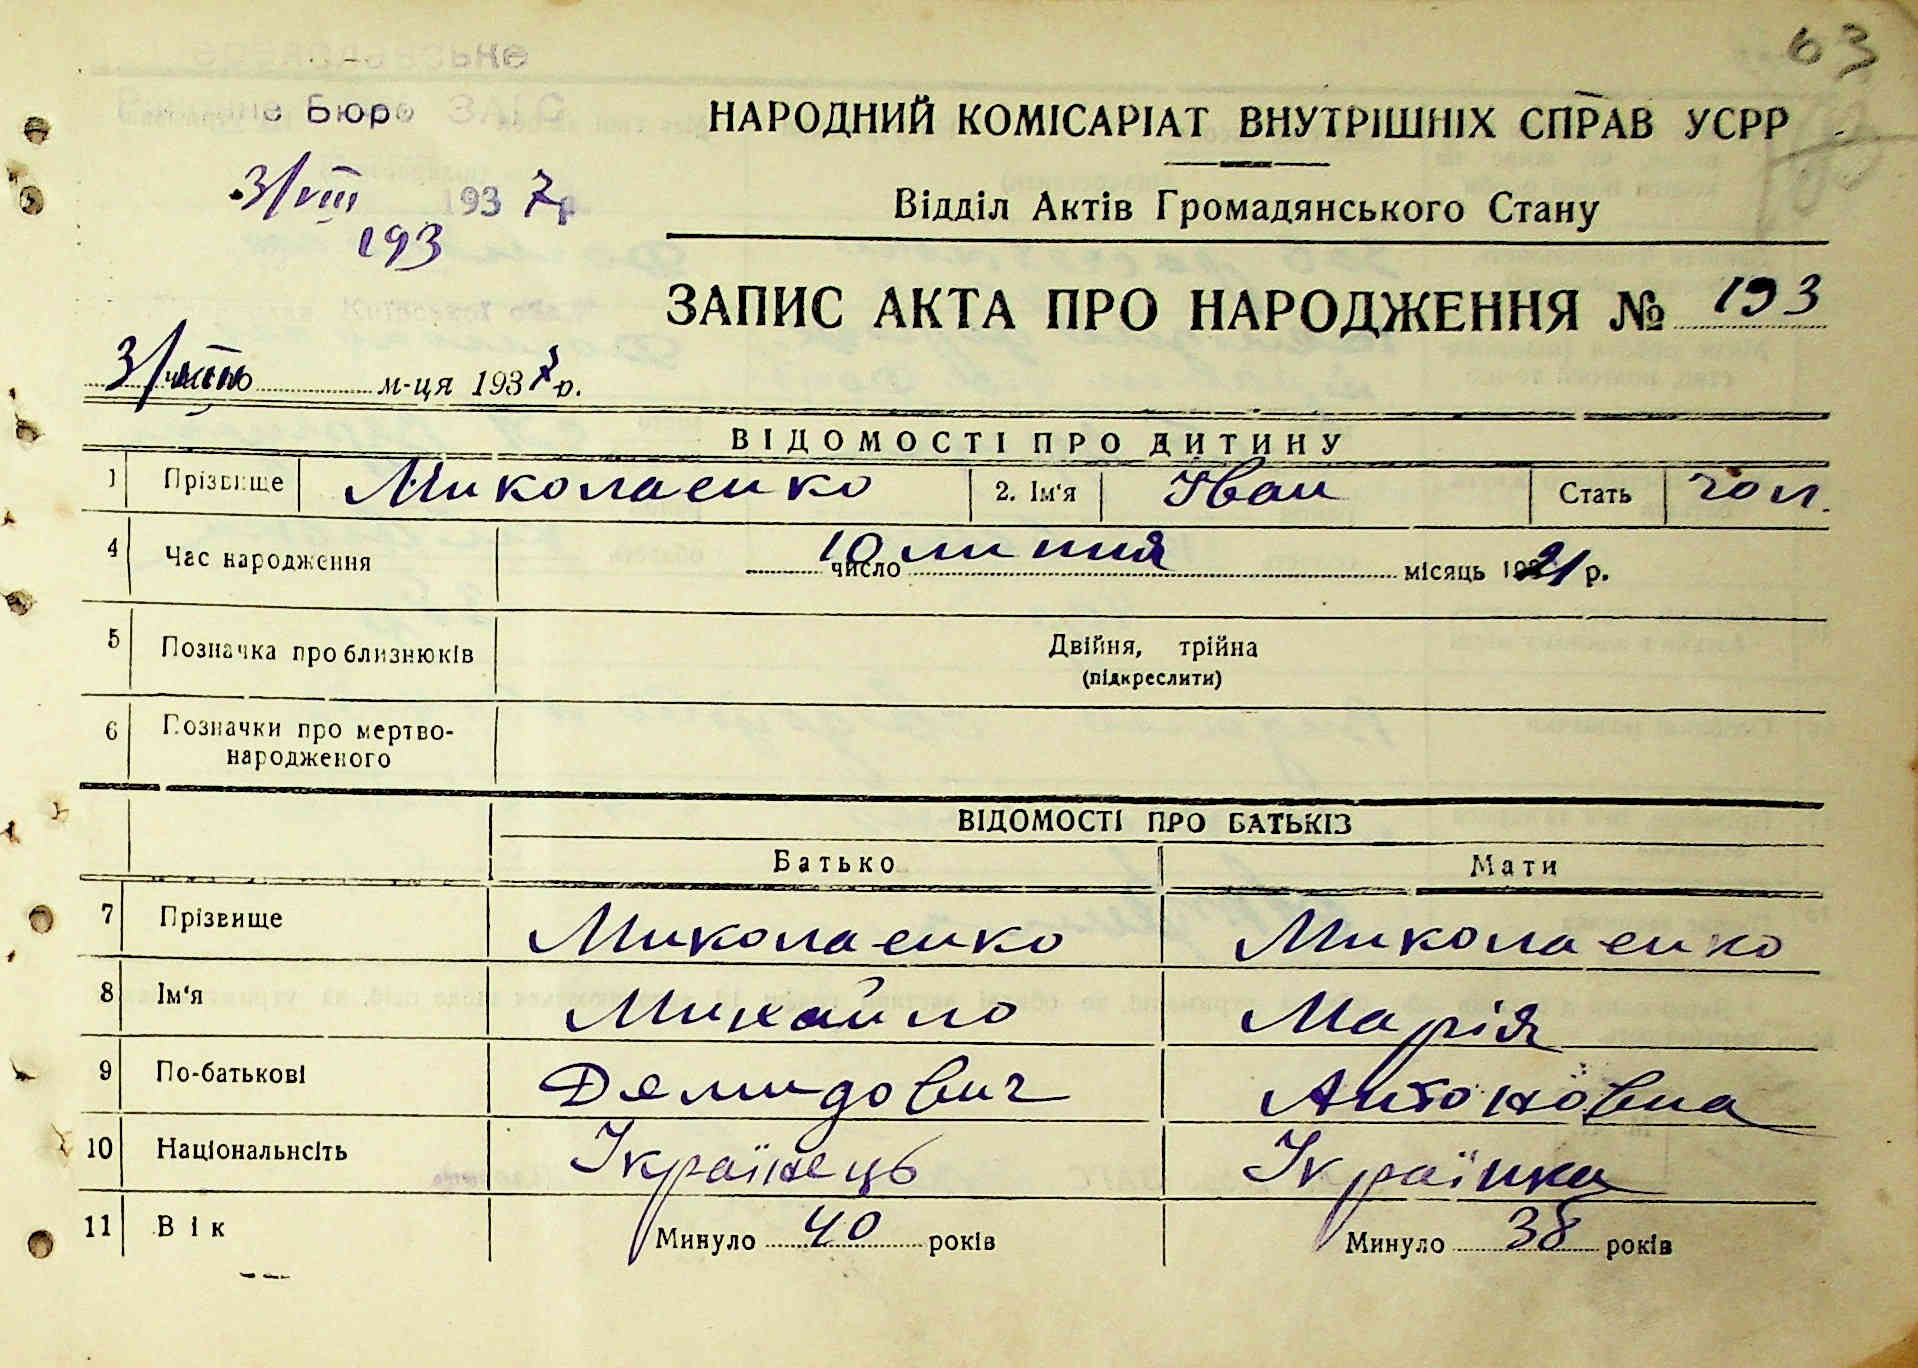 63
Районне Бюро ЗАГС
НАРОДНИЙ КОМІСАРІАТ ВНУТРІШНІХ СПРАВ УСРР
3/VIII 1937р.
193
Відділ Актів Громадянського Стану
ЗАПИС АКТА ПРО НАРОДЖЕННЯ № 193
3/VIII число м-ця 1937 р.
ВІДОМОСТІ ПРО ДИТИНУ
1 Прізвище Миколаенко 2. Ім'я Іван Стать чол.
4 Час народження 10 число липня місяць 1921 р.
5 Позначка про близнюків Двійня, трійна
(підкреслити)
6 Позначки про мертво-
народженого
ВІДОМОСТІ ПРО БАТЬКІВ
Батько Мати
7 Прізвище Миколаенко Миколаенко
8 Ім'я Михайло Марія
9 По-батькові Демидович Антоновна
10 Національнсіть Українець Українка
11 Вік Минуло 40 років Минуло 38 років